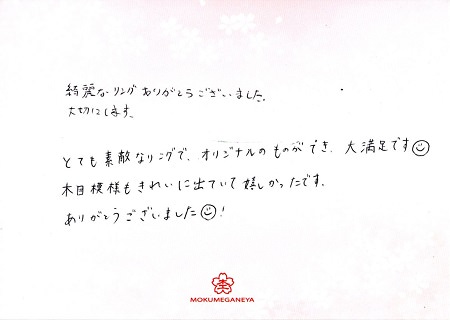 綺麗なリングありがとうございました。
大切にします。
とても素敵なリングで、オリジナルのものができ、大満足です☺
木目模様もきれいに出ていて嬉しかったです。
ありがとうございました☺!
MOKUMEGANEYA